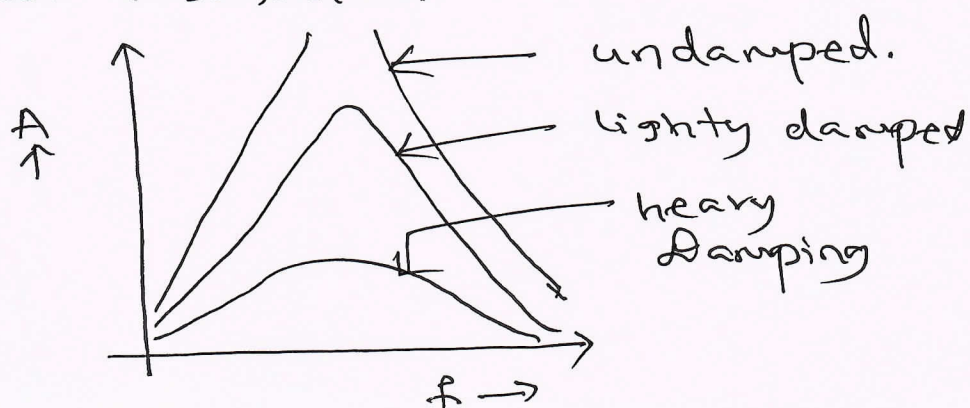 undamped.
A
↑
lighty damped
heavy
Damping
f →